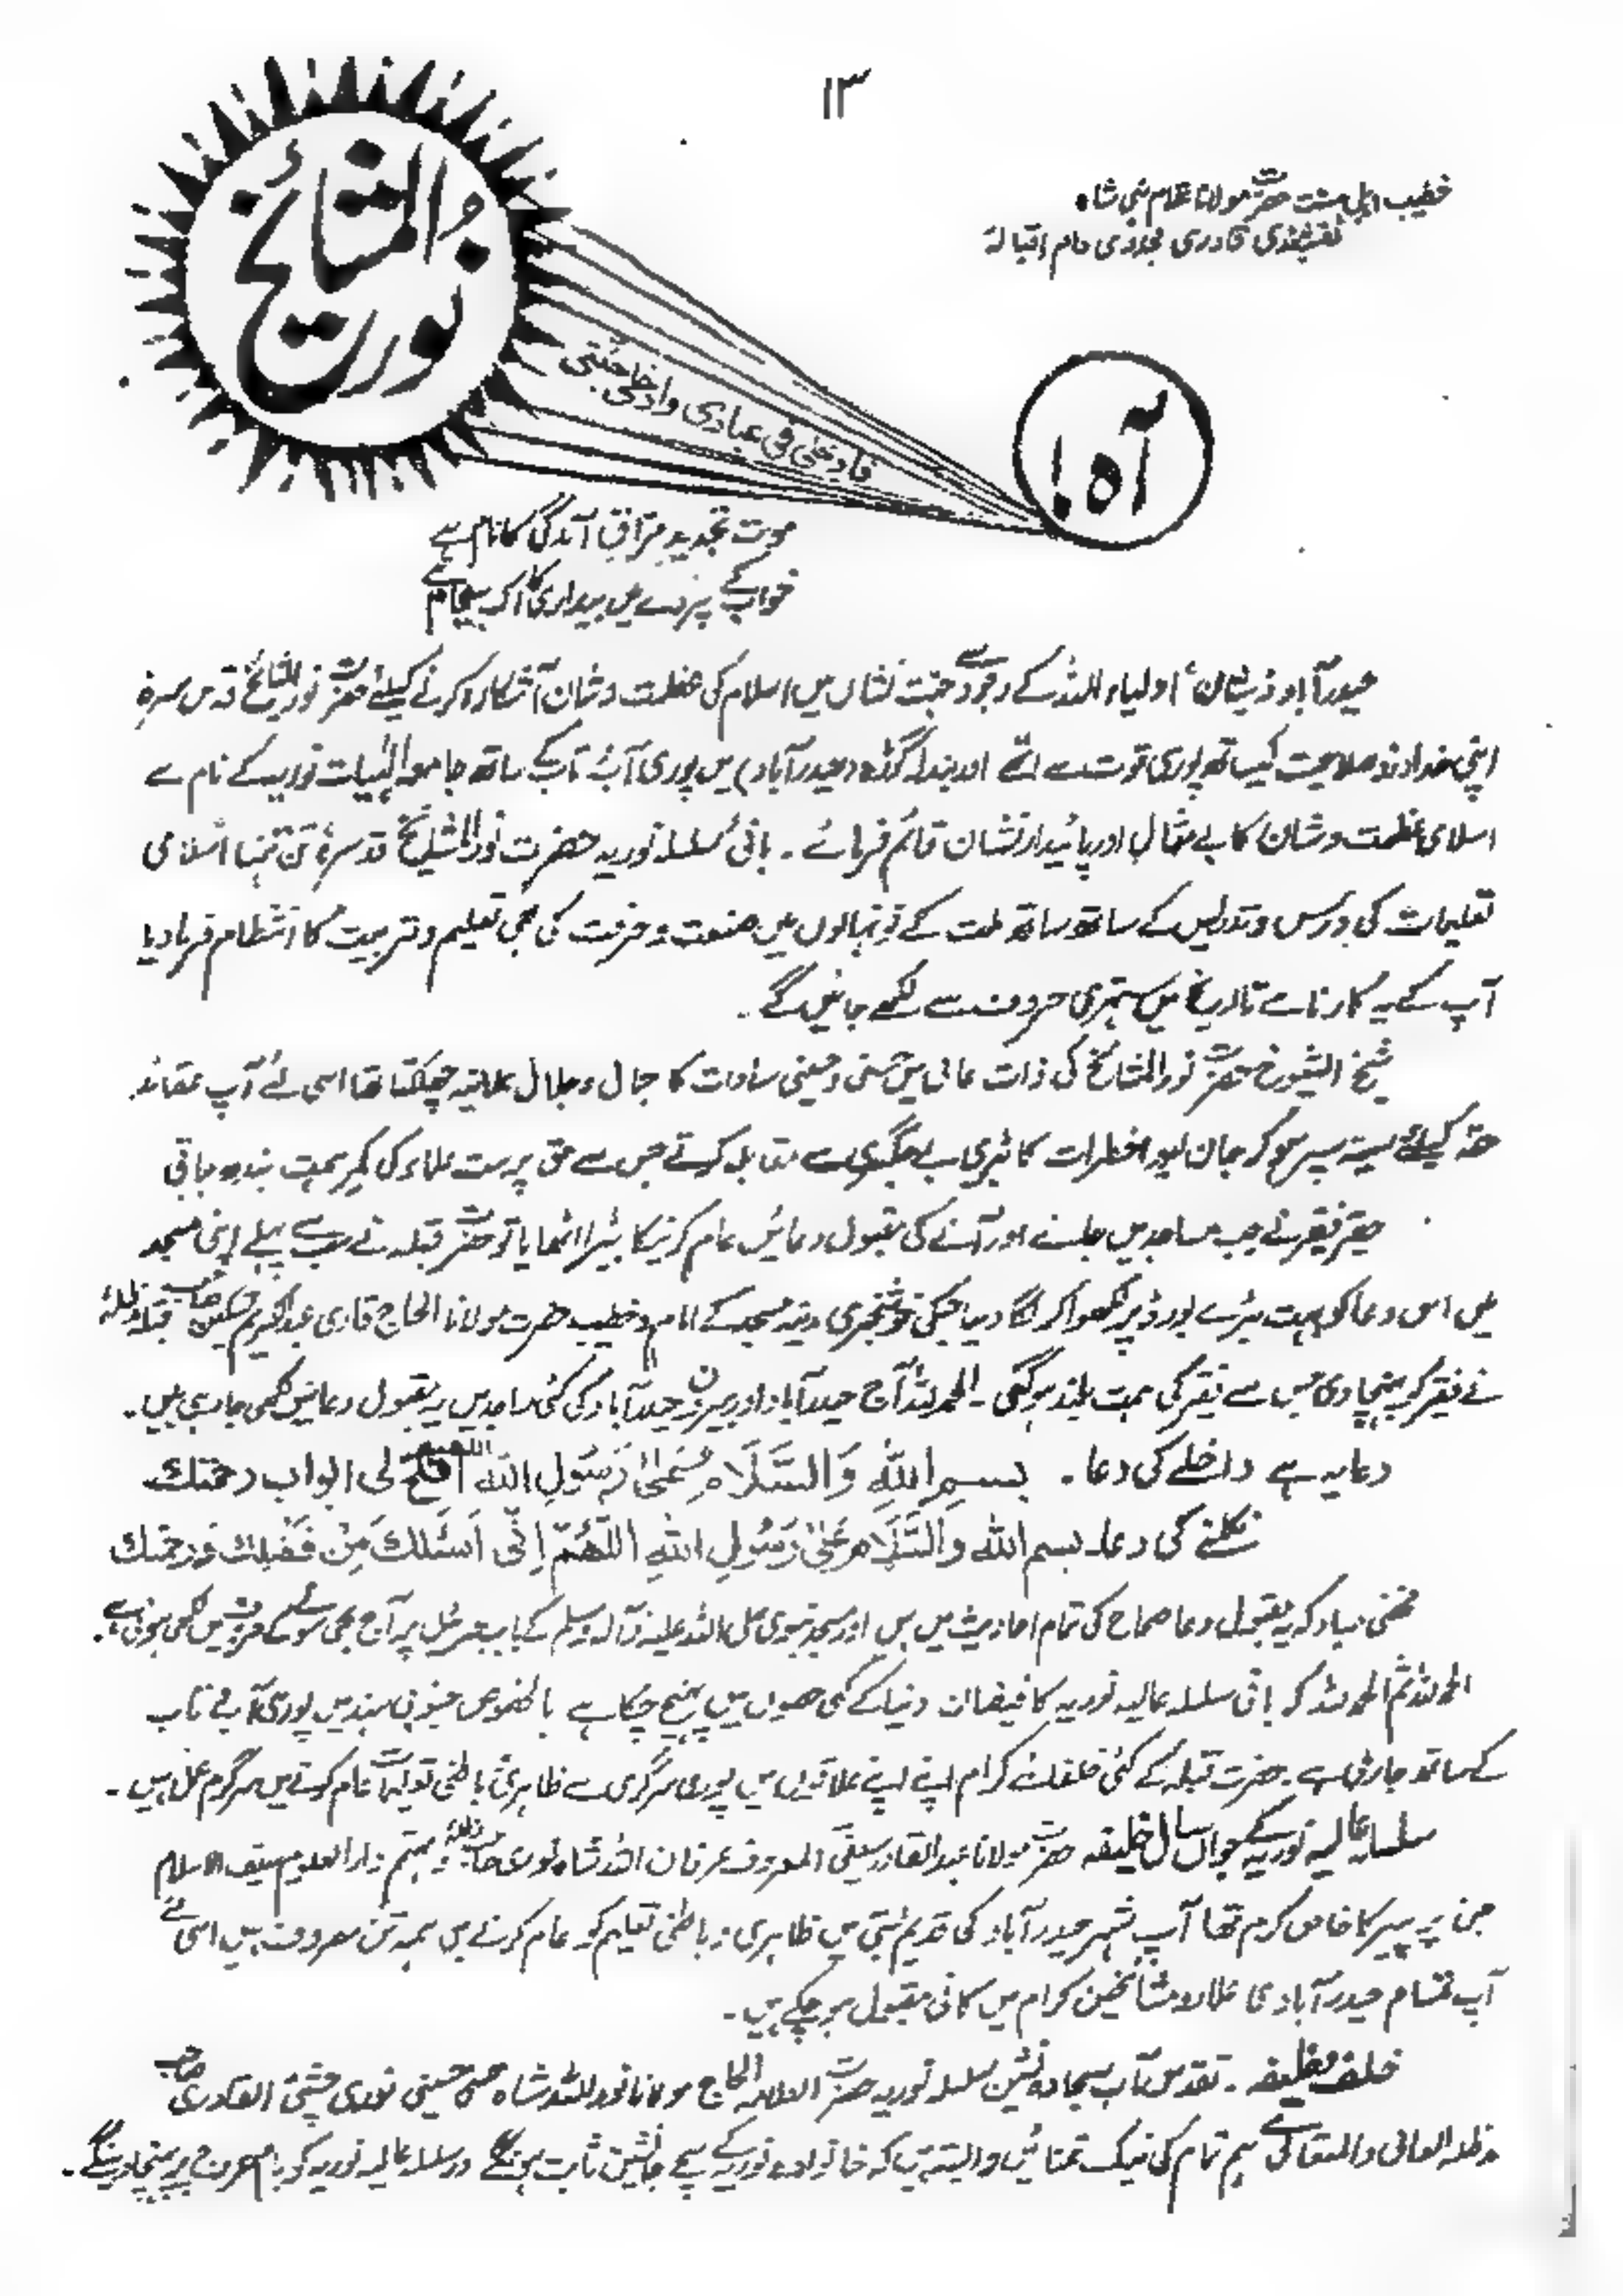 ۱۳
خطیب اہل سنت حضرت مولانا غلام نبی شاہ
نقشبندی قادری مجددی دام اقبالہ
نور المشائخؒ
فادخلی فی عبادی وادخلی جنتی
آہ!
موت تجدید مذاق زندگی کا نام ہے
خواب کے پردے میں بیداری کا اک پیغام ہے
حیدرآباد ذیشان اولیاء اللہ کے وجود سے جنت نشاں میں اسلام کی عظمت و شان آشکارا کرنے کیلئے حضرت نور المشائخ قدس سرہٗ
اپنی خداداد صلاحیت کیساتھ پوری قوت سے اٹھے اور بنڈلہ گوڑہ (حیدرآباد) میں پوری آب و تاب کے ساتھ جامعہ الٰہیات نوریہ کے نام سے
اسلامی عظمت و شان کا بے مثال اور پائیدار نشان قائم فرمائے ۔ بانیٔ سلسلہ نوریہ حضرت نور المشائخ قدسرہٗ تن تنہا اسلامی
تعلیمات کی درس و تدریس کے ساتھ ساتھ ملت کے نونہالوں میں صنعت و حرفت کی بھی تعلیم و تربیت کا انتظام فرما دیا
آپ کے یہ کارنامے تاریخ میں سنہری حروف سے لکھے جائیں گے ۔
شیخ الشیوخ حضرت نور المشائخ کی ذات عالی میں حسنی و حسینی سادات کا جمال و جلال علانیہ چھلکتا تھا اسی لئے آپ عقائد
حقہ کیلئے سینہ سپر ہو کر جان لیوا خطرات کا بڑی بے جگری سے مقابلہ کرتے جس سے حق پرست علماء کی کمر ہمت بندھ جاتی
حقیر فقیر نے جب مساجد میں جانے اور آنے کی مقبول دعائیں عام کرنیکا بیڑا اٹھایا تو حضرت قبلہ نے سب سے پہلے اپنی مسجد
میں اس دعا کو بہت بڑے بورڈ پر لکھوا کر لگا دیا جسکی خوشخبری مسجد کے امام و خطیب حضرت مولانا الحاج قاری عبدالکریم صاحب قبلہ مدظلہٗ
نے فقیر کو پہنچا دی جس سے فقیر کی ہمت بلند ہو گئی ۔ الحمد للہ آج حیدرآباد اور بیرون حیدرآباد کی کئی مساجد میں یہ مقبول دعائیں لکھی جا رہی ہیں۔
دعا یہ ہے داخلے کی دعا ۔ بسم اللہِ وَالسَّلَامُ عَلیٰ رَسُولِ اللہِ اللھم افتح لی ابواب رحمتک
نکلنے کی دعا۔ بسم اللہ وَالسَّلَامُ عَلیٰ رَسُولِ اللہِ اَللّٰھُمَّ اِنِّی اَسْئَلُکَ مِنْ فَضْلِکَ وَرحمتک
مخفی مباد کہ یہ مقبول دعا صحاح کی تمام احادیث میں ہیں اور مسجد نبوی صلی اللہ علیہ وآلہ وسلم کے باب جبرئیل پر آج بھی سونے کے حروف میں لکھی ہوئی ہے۔
الحمد للہ ثم الحمد للہ کہ بانی سلسلہ عالیہ نوریہ کا فیضان دنیا کے کئی حصوں میں پہنچ چکا ہے بالخصوص جنوبی ہند میں پوری آب و تاب
کے ساتھ جاری ہے۔ حضرت قبلہ کے کئی خلفائے کرام اپنے اپنے علاقوں میں پوری سرگرمی سے ظاہری و باطنی تعلیمات عام کرنے میں سرگرم عمل ہیں ۔
سلسلہ عالیہ نوریہ کے جواں سال خلیفہ حضرت مولانا عبدالقادر المعروف عرفان اللہ شاہ نوری صاحب مہتمم دار العلوم سیف الاسلام
جن پر پیر کا خاص کرم تھا آپ شہر حیدرآباد کی قدیم بستی میں ظاہری و باطنی تعلیم کو عام کرنے میں ہمہ تن مصروف ہیں اسی لئے
آپ تمام حیدرآبادی علماء و مشائخین کرام میں کافی مقبول ہو چکے ہیں ۔
خلف و خلیفہ ۔ تقدس مآب سجادہ نشین سلسلہ نوریہ حضرت العلامہ الحاج مولانا نور اللہ شاہ حسنی حسینی نوری چشتی القادری صاحب
مدظلہ العالی والمتعالی سے ہم تمام کی نیک تمنائیں وابستہ ہیں کہ خانوادہ نوریہ کے سچے جانشین ثابت ہونگے اور سلسلہ عالیہ نوریہ کو بام عروج پر پہنچا دینگے ۔